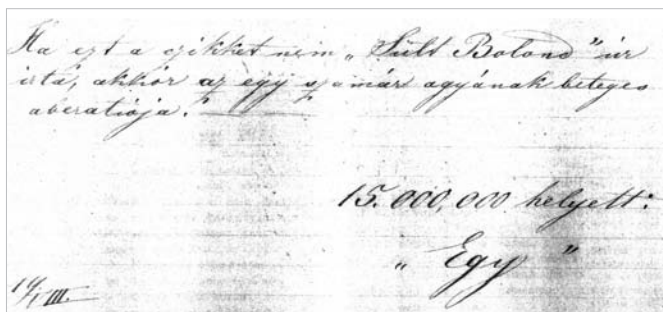 Ha ezt a czikket nem „Sült Bolond” úr
irta, akkor az egy szamár agyának beteges
aberatiója.
15.000,000 helyett:
„ Egy ”